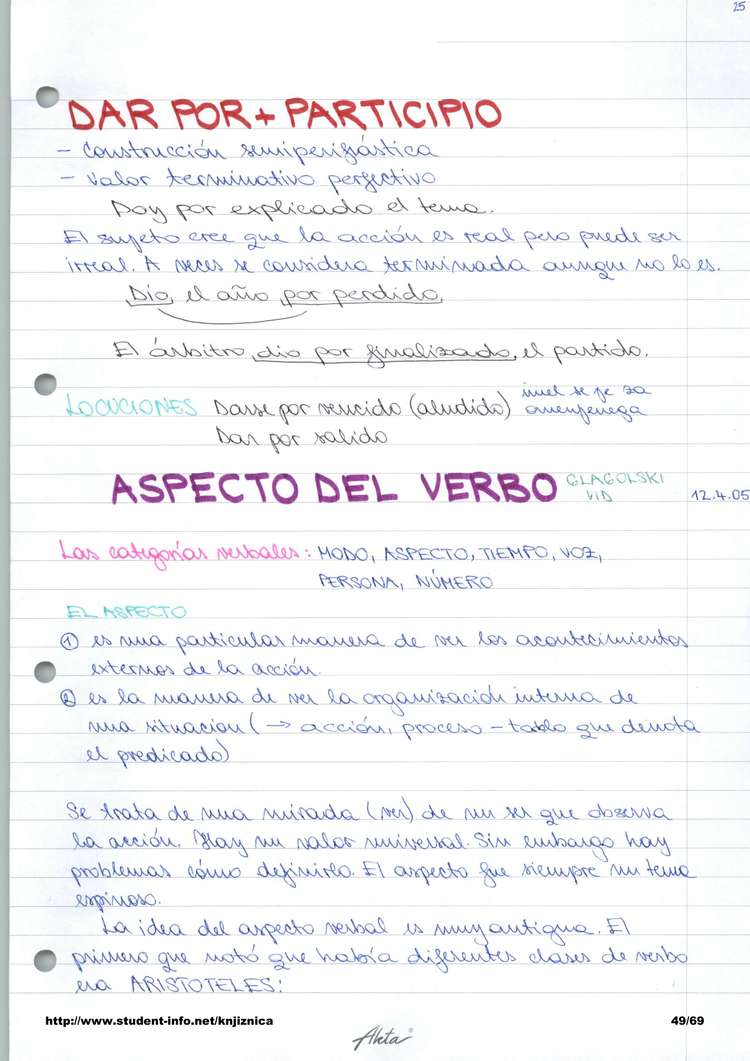 25
DAR POR + PARTICIPIO
- Construcción semiperifrástica
- Valor terminativo perfectivo
Doy por explicado el tema.
El sujeto cree que la acción es real pero puede ser
irreal. A veces se considera terminada aunque no lo es.
Dio el año por perdido,
El árbitro dio por finalizado, el partido.
LOCUCIONES Darse por vencido (aludido) imel se je za
omenjenega
Dar por salido
ASPECTO DEL VERBO GLAGOLSKI
VID 12.4.05
Las categorías verbales: MODO, ASPECTO, TIEMPO, VOZ,
PERSONA, NÚMERO
EL ASPECTO
① es una particular manera de ver los acontecimientos
externos de la acción.
② es la manera de ver la organización interna de
una situacion (→ acción, proceso - que denota
el predicado)
Se trata de una mirada (ver) de un ser que observa
la acción. Hay un valor universal. Sin embargo hay
problemas cómo definirlo. El aspecto fue siempre un tema
espinoso.
La idea del aspecto verbal es muy antigua. El
primero que notó que había diferentes clases de verbo
era ARISTOTELES:
http://www.student-info.net/knjiznica 49/69
Ahta